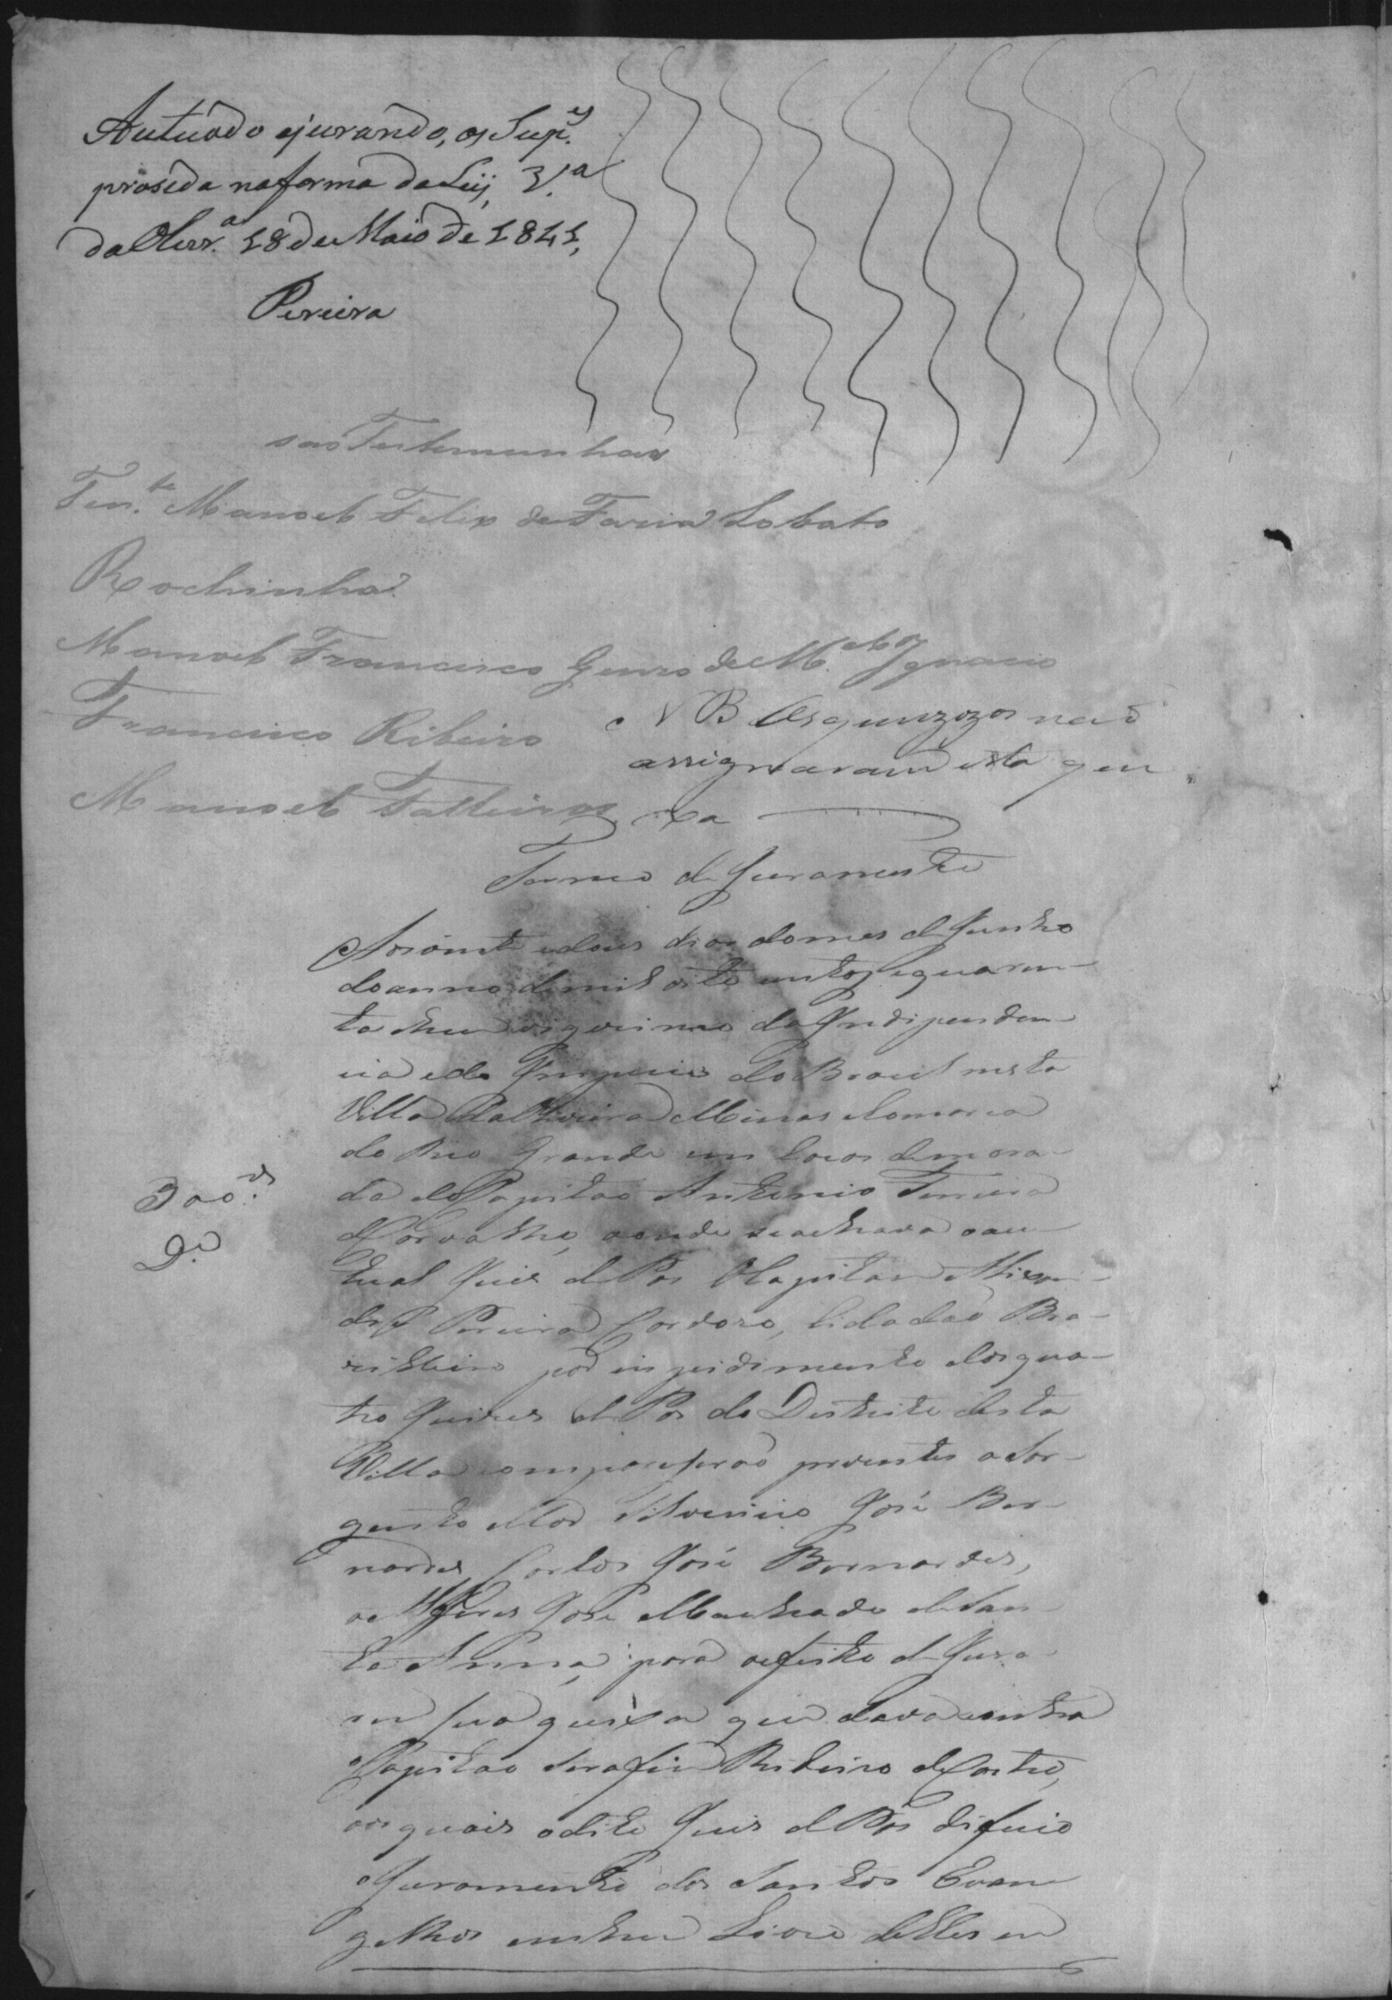 Autuado e jurando, os Sup.es
proseda na forma da Leij, V.a
da Oliv.a 18 de Maio de 1841,
Pereira
sao Testemunhas
Ten.te Manoel Felix de Faria Lobato
Rochinha
Manoel Francisco Genro de M.el Ignacio
Francisco Ribeiro
NB Os queixozos naõ
assignaraõ esta quei
Manoel Falleiros
xa
Termo de Juramento
Aos vinte e dous dias do mes de Junho
do anno de mil oito centos e quaren-
ta e hum vigesimo da Independen-
cia e do Imperio do Brasil nesta
Villa da Oliveira Minas e Comarca
do Rio Grande em Casas de mora-
da do Capitaõ Antonio Ferreira
de Carvalho, aonde se achava o au-
tual Juis de Pas o Capitam
Pereira Cardozo, Cidadaõ Bra-
zilleiro por impidimento dos qua-
tro Juises de Pas do Destrito desta
Villa comparesseraõ prezentes o Sar-
gento Mor Silverio José Ber-
nardes Carlos José Bernardes,
o Alferes José Machado de San-
ta Anna, para ofeito de Jura-
rem sua queixa que dava contra
o Capitaõ Serafim Ribeiro de Castro,
aos quais o dito Juis de Pas difirio
o Juramento dos Santos Evan
gelhos em hum Livro delles em